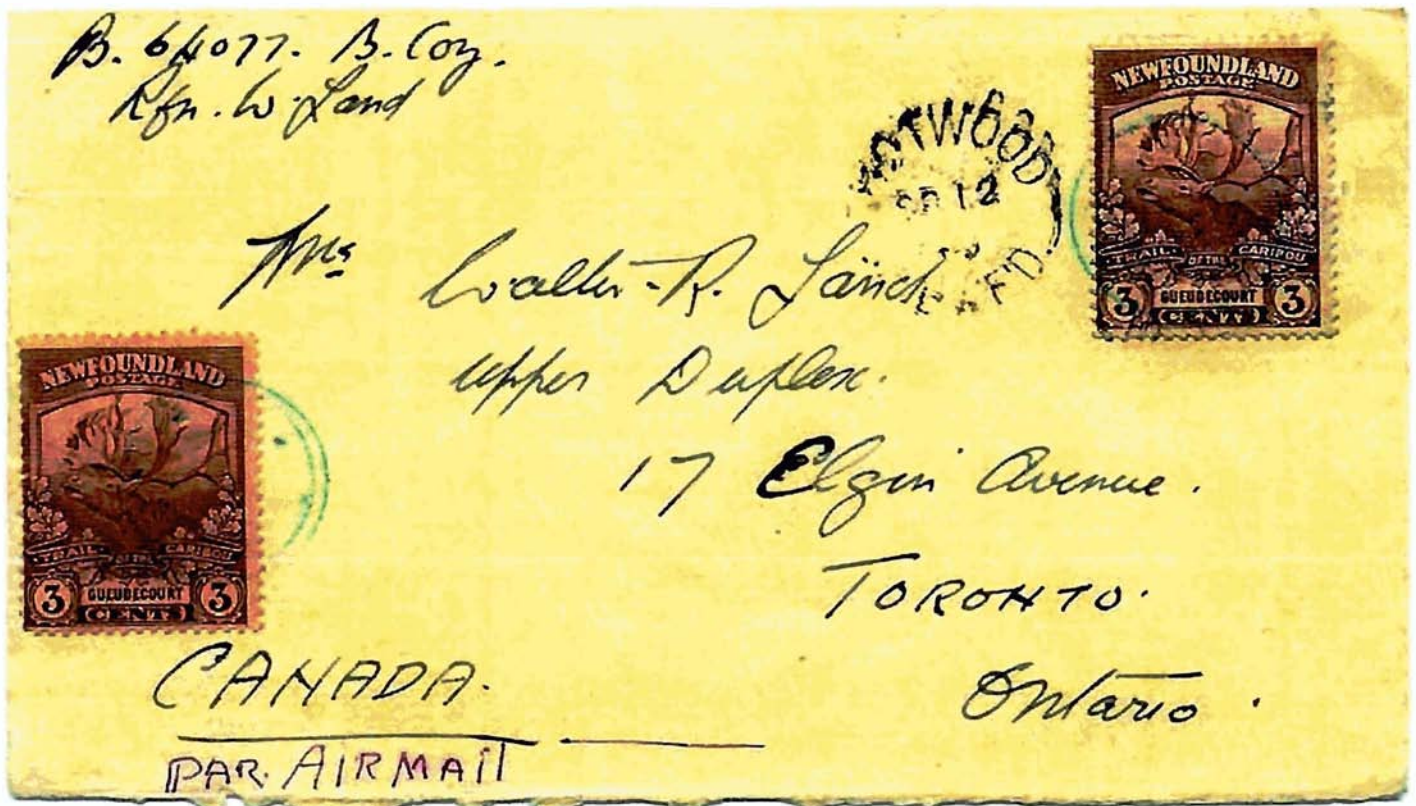 B. 64077. B. Coy.
Rfn. W. Land
NEWFOUNDLAND
POSTAGE
TRAIL OF THE CARIBOU
3 GUEUDECOURT 3
CENTS
BOTWOOD
SP 12
NF'D
Mrs Walter. R. Land
upper Duplex.
17 Elgin Avenue.
TORONTO.
Ontario.
NEWFOUNDLAND
POSTAGE
TRAIL OF THE CARIBOU
3 GUEUDECOURT 3
CENTS
CANADA.
PAR. AIRMAIL